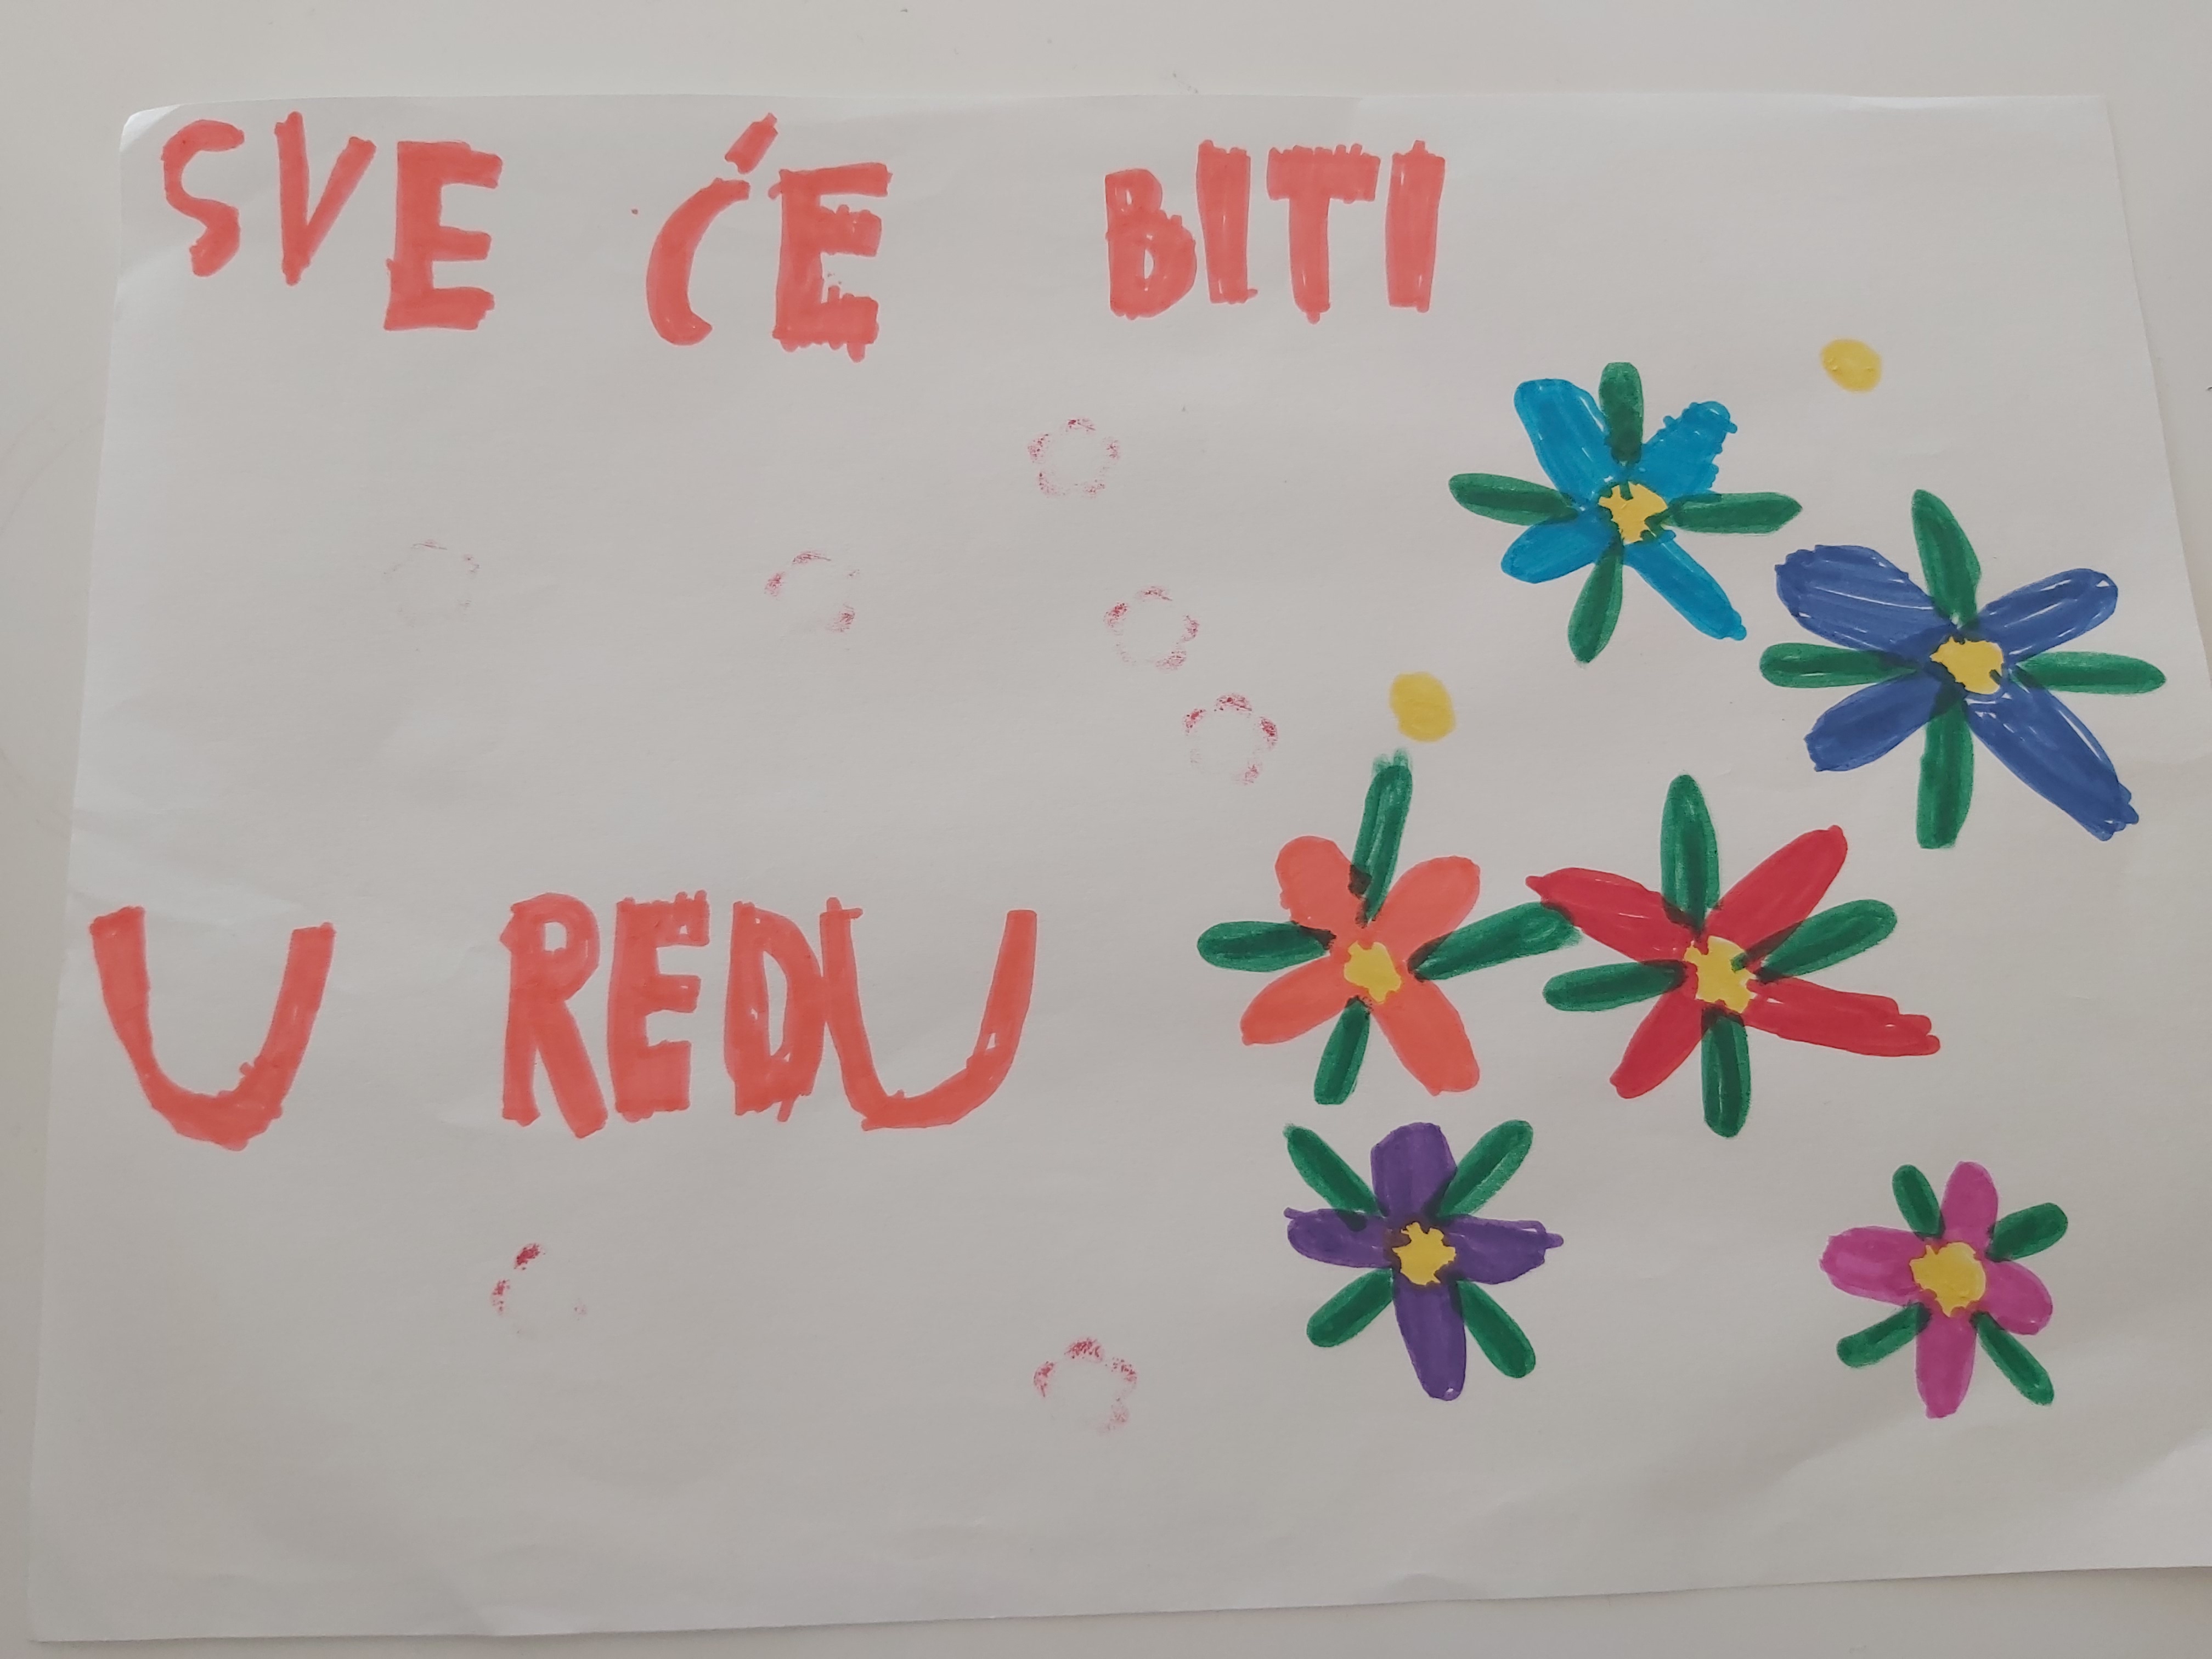 SVE ĆE BITI
U REDU